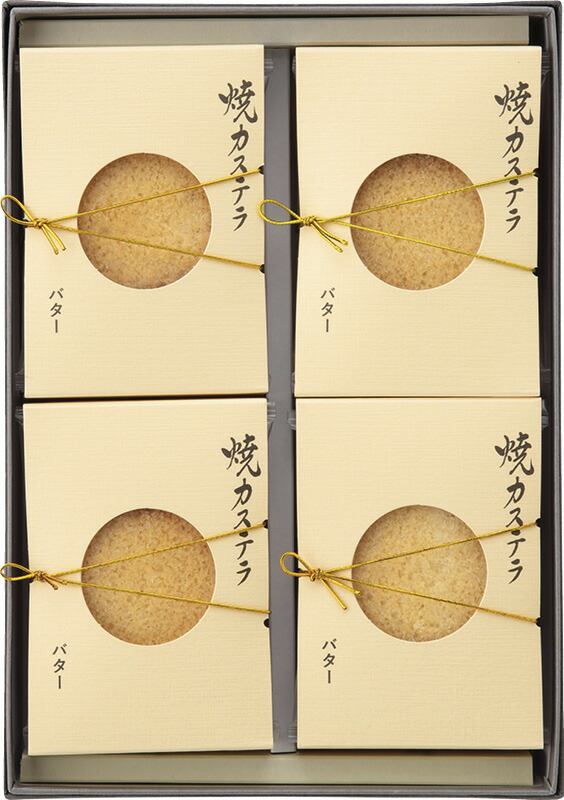 焼カステラ
バター
焼カステラ
バター
焼カステラ
バター
焼カステラ
バター